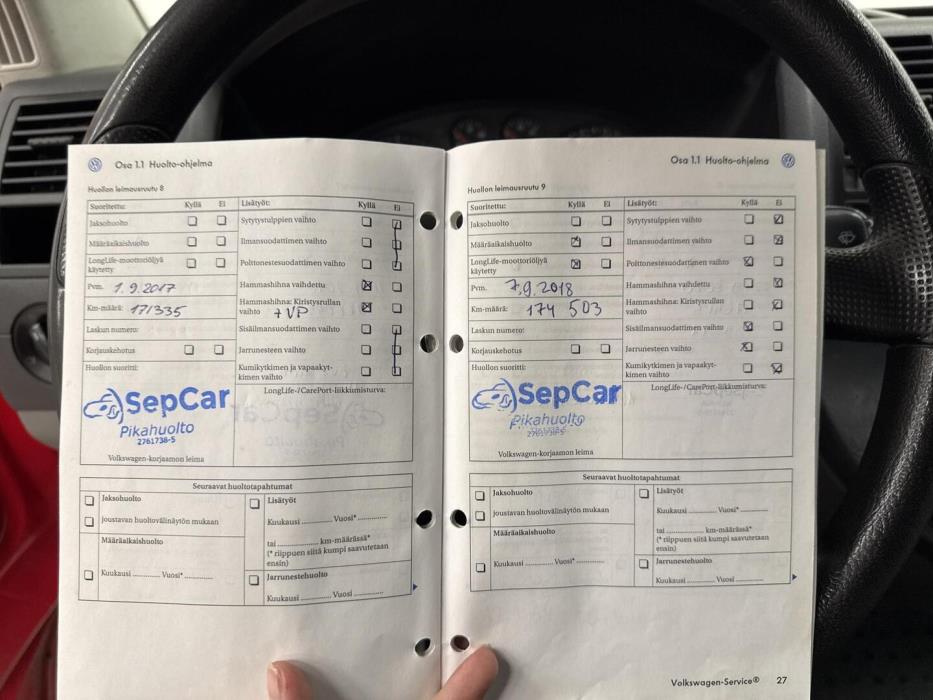 Osa 1.1 Huolto-ohjelma
Huollon leimausruutu 8
Suoritettu: Kyllä Ei Lisätyöt: Kyllä Ei
Jaksohuolto
Sytytystulppien vaihto
Määräaikaishuolto
Ilmansuodattimen vaihto
LongLife-moottoriöljyä
käytetty
Polttonestesuodattimen vaihto
Pvm. 1.9.2017
Hammashihna vaihdettu
Km-määrä: 171335
Hammashihna: Kiristysrullan
vaihto + VP
Laskun numero:
Sisäilmansuodattimen vaihto
Korjauskehotus
Jarrunesteen vaihto
Huollon suoritti:
Kumikytkimen ja vapaakyt-
kimen vaihto
SepCar
Pikahuolto
2761738-5
LongLife-/CarePort-liikkumisturva:
Volkswagen-korjaamon leima
Seuraavat huoltotapahtumat
Jaksohuolto
Lisätyöt
Joustavan huoltovälinäytön mukaan
Kuukausi ............ Vuosi* ............
Määräaikaishuolto
tai ............ km-määrässä*
(* riippuen siitä kumpi saavutetaan
ensin)
Kuukausi ............ Vuosi* ............
Jarrunestehuolto
Kuukausi ............ Vuosi ............
Osa 1.1 Huolto-ohjelma
Huollon leimausruutu 9
Suoritettu: Kyllä Ei Lisätyöt: Kyllä Ei
Jaksohuolto
Sytytystulppien vaihto
Määräaikaishuolto
Ilmansuodattimen vaihto
LongLife-moottoriöljyä
käytetty
Polttonestesuodattimen vaihto
Pvm. 7.9.2018
Hammashihna vaihdettu
Km-määrä: 174 503
Hammashihna: Kiristysrullan
vaihto
Laskun numero:
Sisäilmansuodattimen vaihto
Korjauskehotus
Jarrunesteen vaihto
Huollon suoritti:
Kumikytkimen ja vapaakyt-
kimen vaihto
SepCar
Pikahuolto
2761738-5
LongLife-/CarePort-liikkumisturva:
Volkswagen-korjaamon leima
Seuraavat huoltotapahtumat
Jaksohuolto
Lisätyöt
Joustavan huoltovälinäytön mukaan
Kuukausi ............ Vuosi* ............
Määräaikaishuolto
tai ............ km-määrässä*
(* riippuen siitä kumpi saavutetaan
ensin)
Kuukausi ............ Vuosi* ............
Jarrunestehuolto
Kuukausi ............ Vuosi ............
Volkswagen-Service® 27